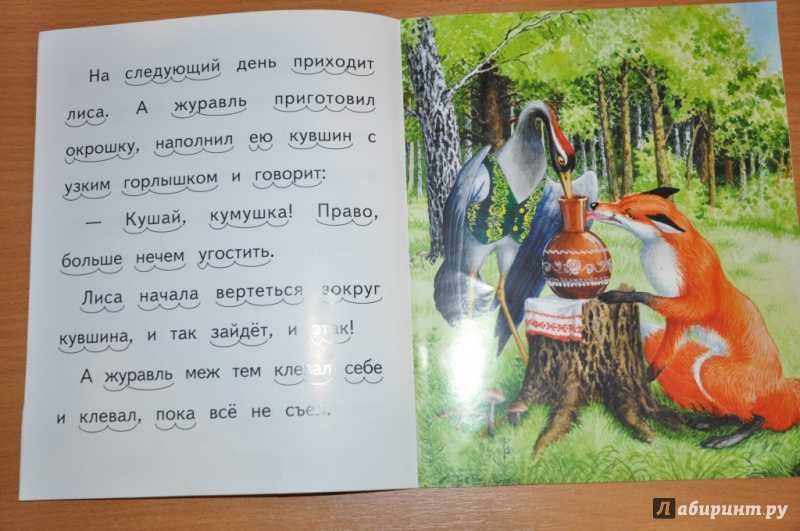 На следующий день приходит
лиса. А журавль приготовил
окрошку, наполнил ею кувшин с
узким горлышком и говорит:
— Кушай, кумушка! Право,
больше нечем угостить.
Лиса начала вертеться вокруг
кувшина, и так зайдёт, и этак!
А журавль меж тем клевал себе
и клевал, пока всё не съел.
Лабиринт.ру